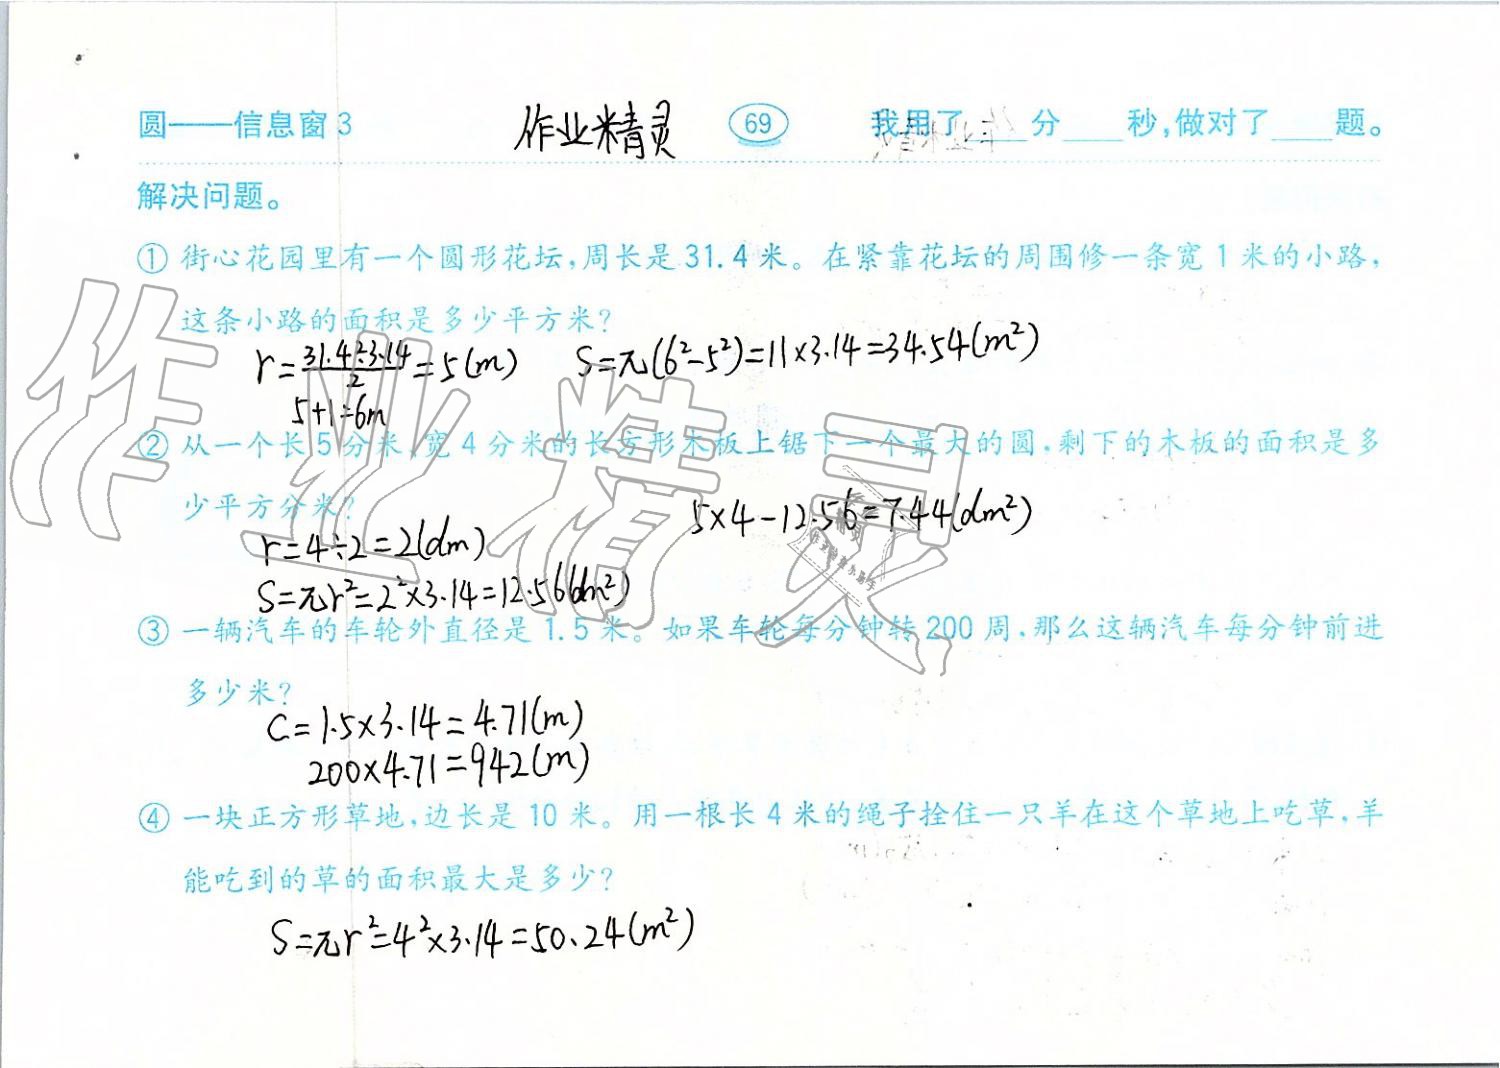 圆——信息窗3 作业精灵 69 我用了____分____秒,做对了____题。
解决问题。
① 街心花园里有一个圆形花坛,周长是31.4米。在紧靠花坛的周围修一条宽1米的小路,
这条小路的面积是多少平方米?
r=31.4÷3.14/2=5(m) S=π(6²-5²)=11×3.14=34.54(m²)
5+1=6m
② 从一个长5分米,宽4分米的长方形木板上锯下一个最大的圆,剩下的木板的面积是多
少平方分米?
5×4-12.56=7.44(dm²)
r=4÷2=2(dm)
S=πr²=2²×3.14=12.56(dm²)
③ 一辆汽车的车轮外直径是1.5米。如果车轮每分钟转200周,那么这辆汽车每分钟前进
多少米?
C=1.5×3.14=4.71(m)
200×4.71=942(m)
④ 一块正方形草地,边长是10米。用一根长4米的绳子拴住一只羊在这个草地上吃草,羊
能吃到的草的面积最大是多少?
S=πr²=4²×3.14=50.24(m²)
作业精灵